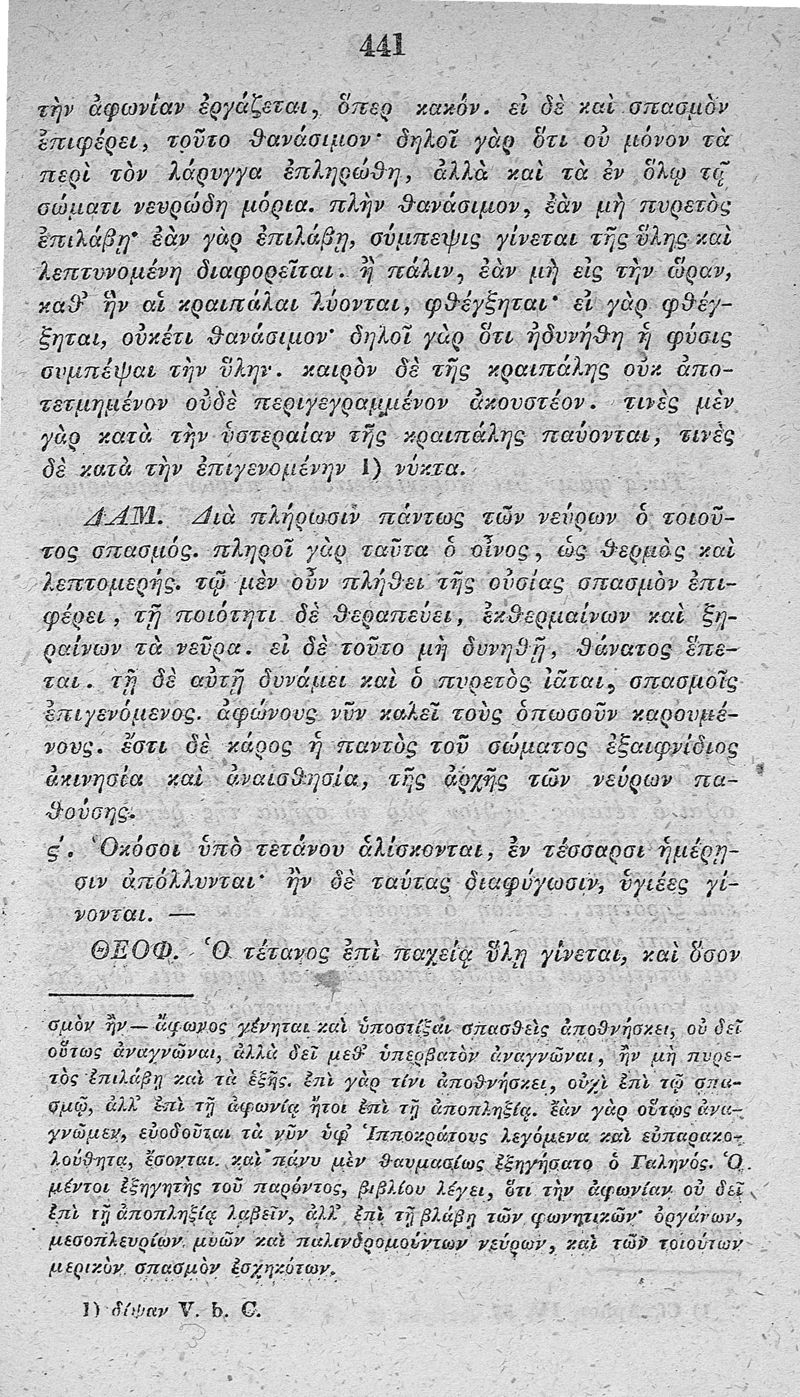 441
τὴν ἀφωνίαν ἐργάζεται, ὅπερ κακόν. εἰ δὲ καὶ σπασμὸν
ἐπιφέρει, τοῦτο θανάσιμον· δηλοῖ γὰρ ὅτι οὐ μόνον τὰ
περὶ τὸν λάρυγγα ἐπληρώθη, ἀλλὰ καὶ τὰ ἐν ὅλῳ τῷ
σώματι νευρώδη μόρια. πλὴν θανάσιμον, ἐὰν μὴ πυρετὸς
ἐπιλάβῃ· ἐὰν γὰρ ἐπιλάβῃ, σύμπεψις γίνεται τῆς ὕλης καὶ
λεπτυνομένη διαφορεῖται. ἢ πάλιν, ἐὰν μὴ εἰς τὴν ὥραν,
καθ᾽ ἣν αἱ κραιπάλαι λύονται, φθέγξηται· εἰ γὰρ φθέγ-
ξηται, οὐκέτι θανάσιμον· δηλοῖ γὰρ ὅτι ἠδυνήθη ἡ φύσις
συμπέψαι τὴν ὕλην. καιρὸν δὲ τῆς κραιπάλης οὐκ ἀπο-
τετμημένον οὐδὲ περιγεγραμμένον ἀκουστέον. τινὲς μὲν
γὰρ κατὰ τὴν ὑστεραίαν τῆς κραιπάλης παύονται, τινὲς
δὲ κατὰ τὴν ἐπιγενομένην 1) νύκτα.
ΔΑΜ. Διὰ πλήρωσιν πάντως τῶν νεύρων ὁ τοιοῦ-
τος σπασμός. πληροῖ γὰρ ταῦτα ὁ οἶνος, ὡς θερμὸς καὶ
λεπτομερής. τῷ μὲν οὖν πλήθει τῆς οὐσίας σπασμὸν ἐπι-
φέρει, τῇ ποιότητι δὲ θεραπεύει, ἐκθερμαίνων καὶ ξη-
ραίνων τὰ νεῦρα. εἰ δὲ τοῦτο μὴ δυνηθῇ, θάνατος ἕπε-
ται. τῇ δὲ αὐτῇ δυνάμει καὶ ὁ πυρετὸς ἰᾶται, σπασμοῖς
ἐπιγενόμενος. ἀφώνους νῦν καλεῖ τοὺς ὁπωσοῦν καρουμέ-
νους. ἔστι δὲ κάρος ἡ παντὸς τοῦ σώματος ἐξαιφνίδιος
ἀκινησία καὶ ἀναισθησία, τῆς ἀρχῆς τῶν νεύρων πα-
θούσης.
ϛ΄. Ὁκόσοι ὑπὸ τετάνου ἁλίσκονται, ἐν τέσσαρσι ἡμέρῃ-
σιν ἀπόλλυνται· ἢν δὲ ταύτας διαφύγωσιν, ὑγιέες γί-
νονται. —
ΘΕΟΦ. Ὁ τέτανος ἐπὶ παχείᾳ ὕλῃ γίνεται, καὶ ὅσον
σμὸν ἢν — ἄφωνος γένηται καὶ ὑποστίξαι σπασθεὶς ἀποθνήσκει, οὐ δεῖ
οὕτως ἀναγνῶναι, ἀλλὰ δεῖ μεθ᾽ ὑπερβατὸν ἀναγνῶναι, ἢν μὴ πυρε-
τὸς ἐπιλάβῃ καὶ τὰ ἑξῆς. ἐπὶ γὰρ τίνι ἀποθνήσκει, οὐχὶ ἐπὶ τῷ σπα-
σμῷ, ἀλλ᾽ ἐπὶ τῇ ἀφωνίᾳ ἤτοι ἐπὶ τῇ ἀποπληξίᾳ. ἐὰν γὰρ οὕτως ἀνα-
γνῶμεν, εὐοδοῦται τὰ νῦν ὑφ᾽ Ἱπποκράτους λεγόμενα καὶ εὐπαρακο-
λούθητα, ἔσονται. καὶ πάνυ μὲν θαυμασίως ἐξηγήσατο ὁ Γαληνός. Ὁ
μέντοι ἐξηγητὴς τοῦ παρόντος, βιβλίου λέγει, ὅτι τὴν ἀφωνίαν οὐ δεῖ
ἐπὶ τῇ ἀποπληξίᾳ λαβεῖν, ἀλλ᾽ ἐπὶ τῇ βλάβῃ τῶν φωνητικῶν ὀργάνων,
μεσοπλευρίων μυῶν καὶ παλινδρομούντων νεύρων, καὶ τῶν τοιούτων
μερικὸν σπασμὸν ἐσχηκότων.
1) δίψαν V. b. C.